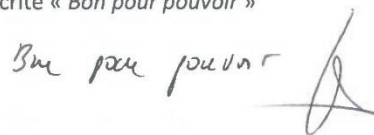 crite « Bon pour pouvoir »
Bon pour pouvoir